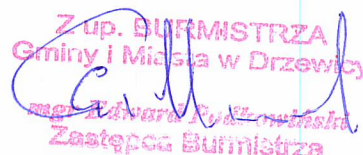 Z up. BURMISTRZA
Gminy i Miasta w Drzewicy
mgr Edward
Zastępca Burmistrza